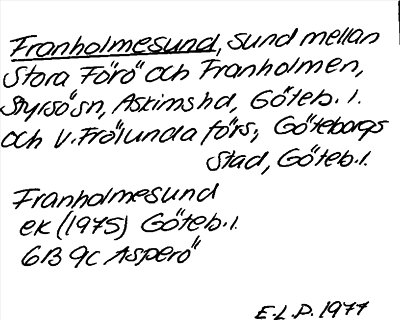 Franholmesund, sund mellan
Stora Förö och Franholmen,
Styrsö sn, Askims hd, Göteb. l.
och V. Frölunda förs., Göteborgs
stad, Göteb. l.
Franholmesund
ek (1975) Göteb. l.
6B 9c Asperö
E.L.P. 1977